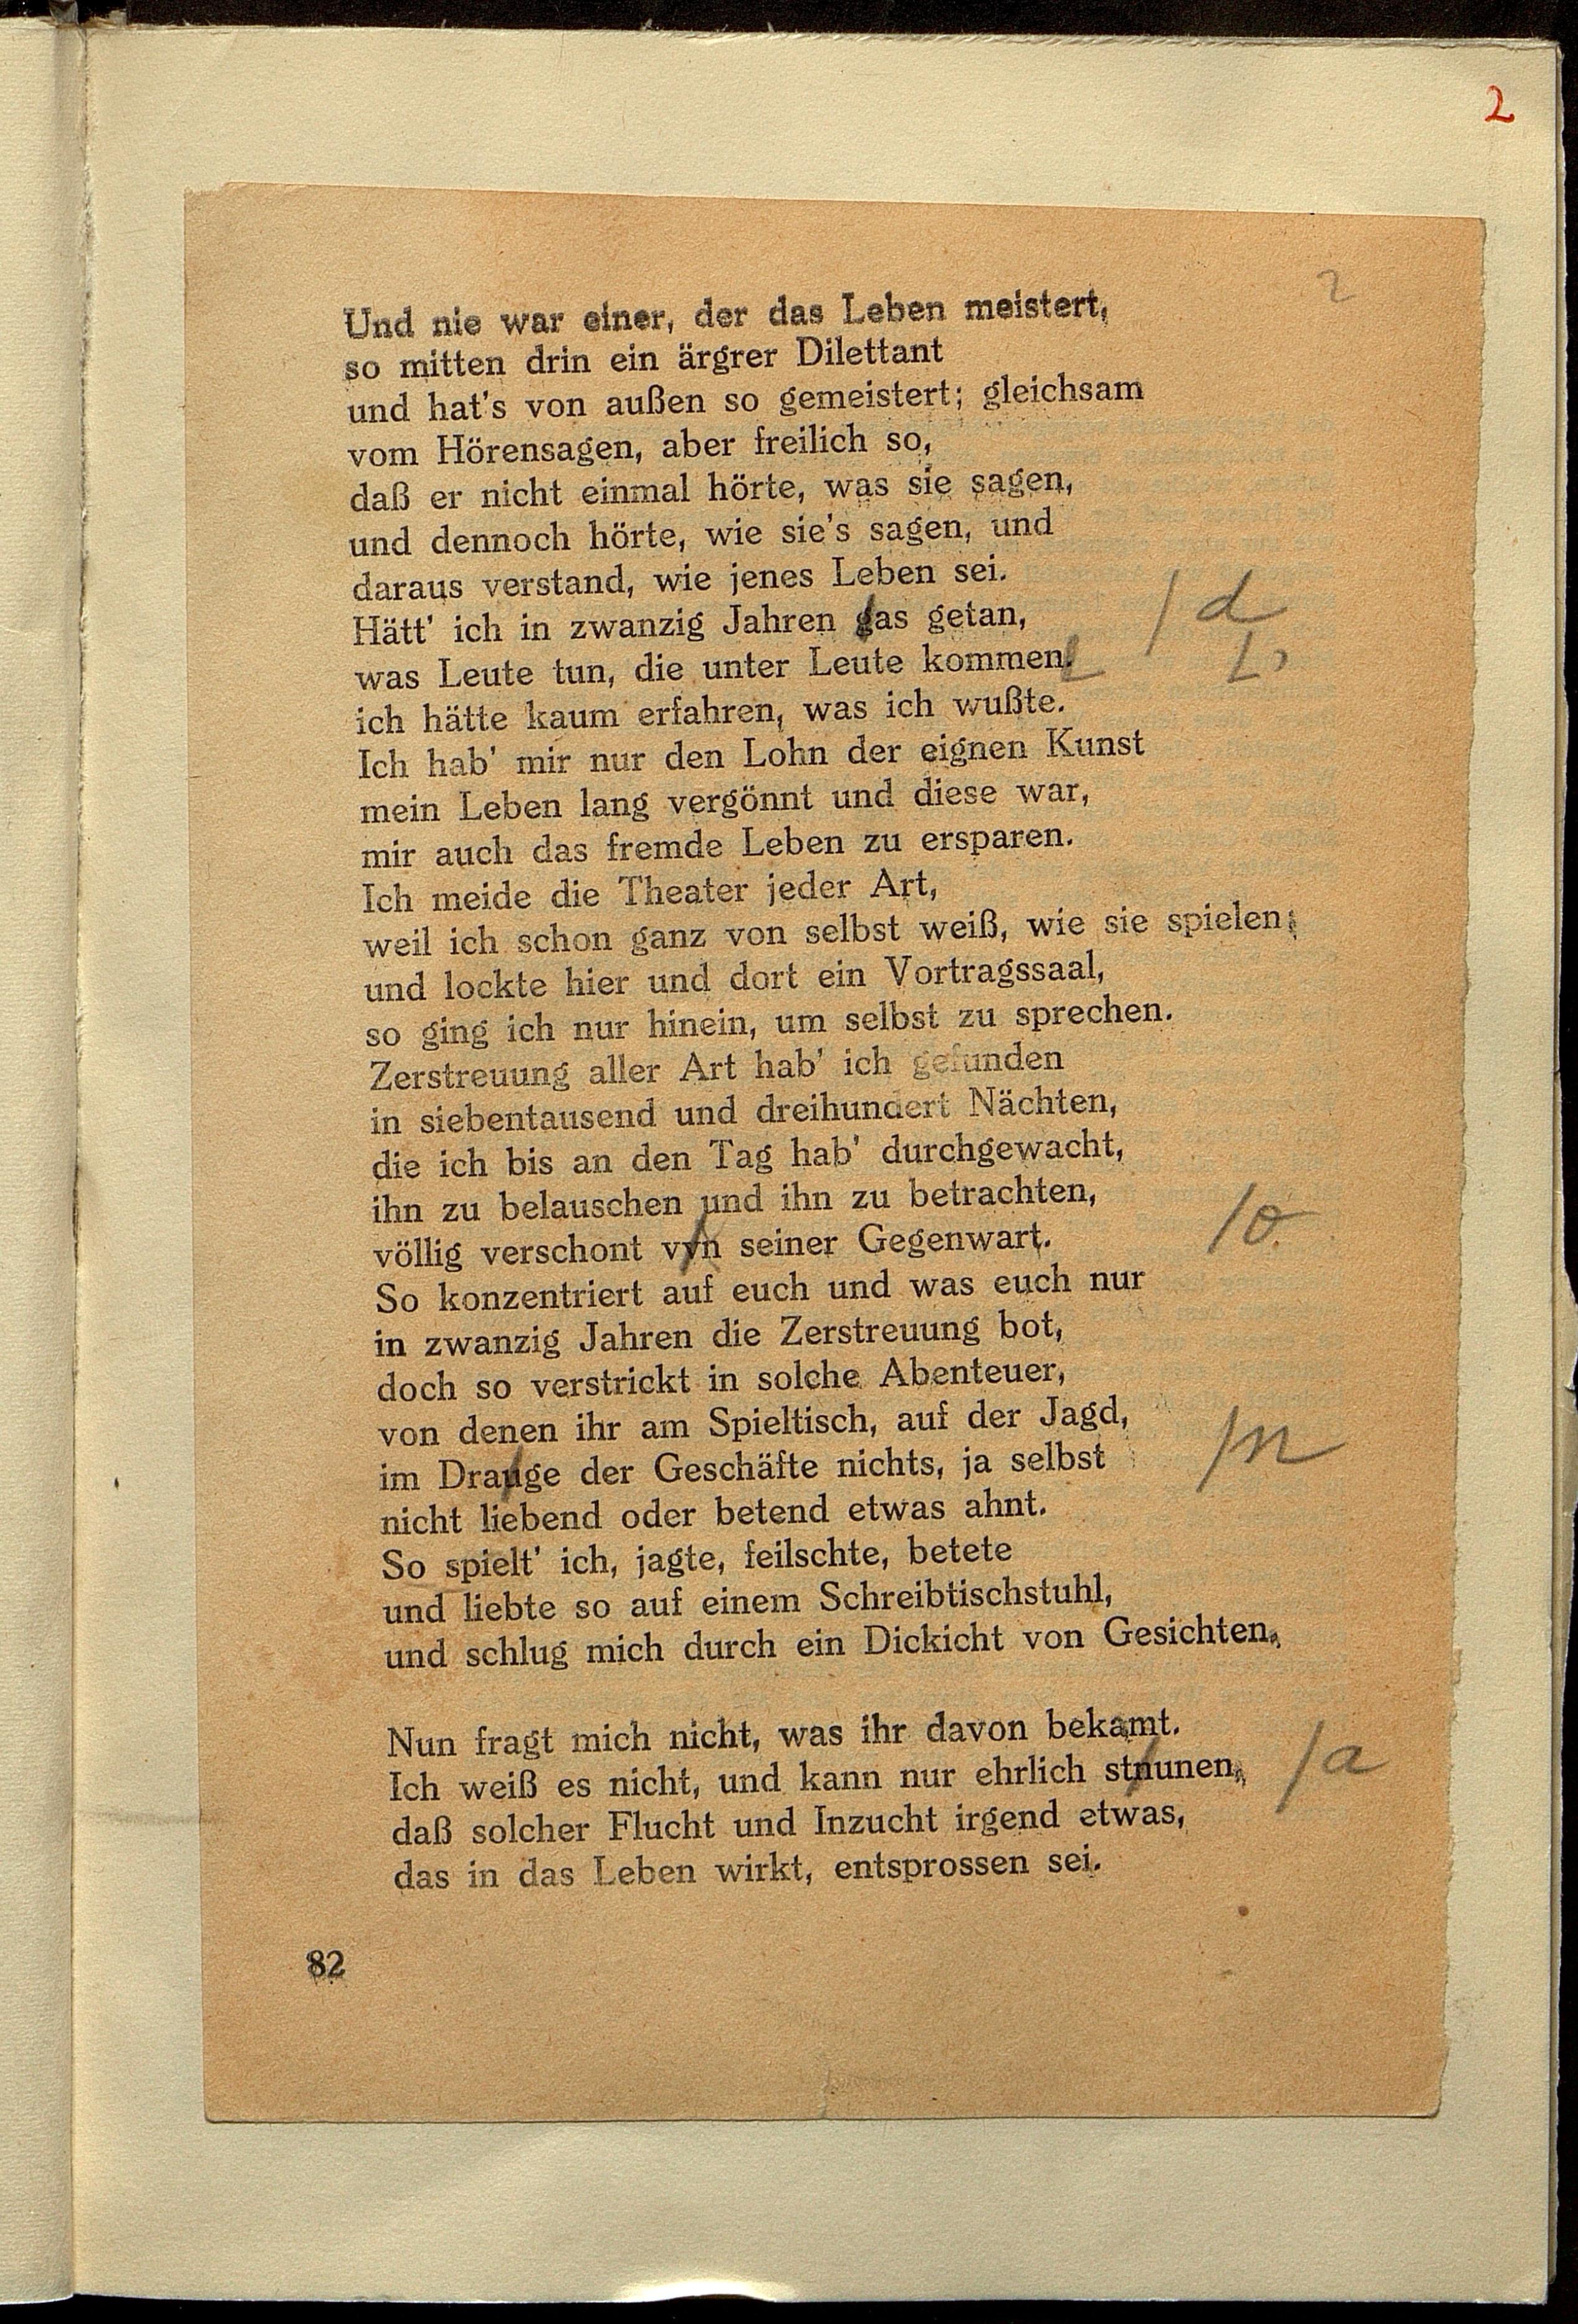 2
2
Und nie war einer, der das Leben meistert,
so mitten drin ein ärgrer Dilettant
und hat's von außen so gemeistert; gleichsam
vom Hörensagen, aber freilich so,
daß er nicht einmal hörte, was sie sagen,
und dennoch hörte, wie sie's sagen, und
daraus verstand, wie jenes Leben sei.
Hätt' ich in zwanzig Jahren gas getan, /d
was Leute tun, die unter Leute kommen. ,
ich hätte kaum erfahren, was ich wußte.
Ich hab' mir nur den Lohn der eignen Kunst
mein Leben lang vergönnt und diese war,
mir auch das fremde Leben zu ersparen.
Ich meide die Theater jeder Art,
weil ich schon ganz von selbst weiß, wie sie spielen;
und lockte hier und dort ein Vortragssaal,
so ging ich nur hinein, um selbst zu sprechen.
Zerstreuung aller Art hab' ich gefunden
in siebentausend und dreihundert Nächten,
die ich bis an den Tag hab' durchgewacht,
ihn zu belauschen und ihn zu betrachten,
völlig verschont vyn seiner Gegenwart. /o
So konzentriert auf euch und was euch nur
in zwanzig Jahren die Zerstreuung bot,
doch so verstrickt in solche Abenteuer,
von denen ihr am Spieltisch, auf der Jagd,
im Drauge der Geschäfte nichts, ja selbst /n
nicht liebend oder betend etwas ahnt.
So spielt' ich, jagte, feilschte, betete
und liebte so auf einem Schreibtischstuhl,
und schlug mich durch ein Dickicht von Gesichten.
Nun fragt mich nicht, was ihr davon bekamt.
Ich weiß es nicht, und kann nur ehrlich stnunen, /a
daß solcher Flucht und Inzucht irgend etwas,
das in das Leben wirkt, entsprossen sei.
82